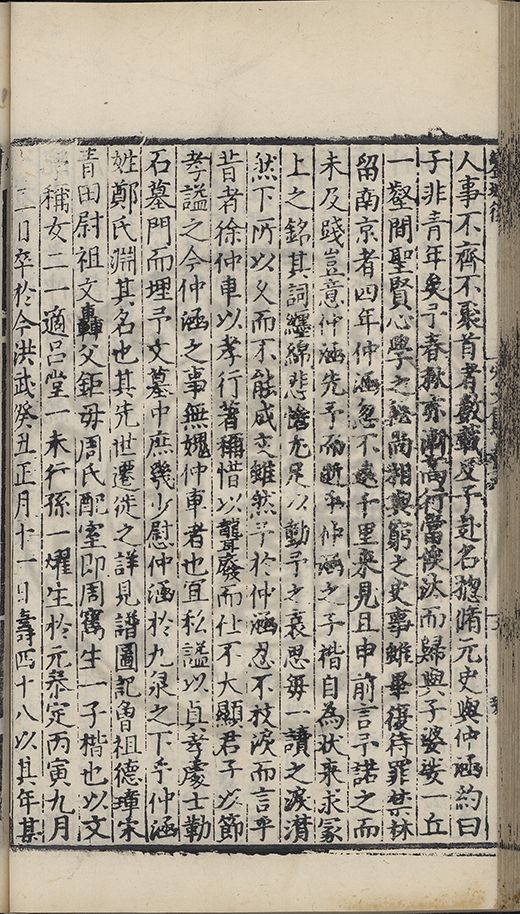 人事不齊不聚首者數載及予赴名總脩元史與仲涵約曰
子非青年矣予春秋亦漸高行當俟汰而歸與子婆娑一丘
一壑間聖賢心學之秘尚相與窮之史事雖畢復待罪禁林
留南京者四年仲涵忽不遠千里來見且申前言予諾之而
未及踐豈意仲涵先予而逝乎仲涵之子楷自為狀來求冢
上之銘其詞纏綿悲愴尤足以動予之衰思毎一讀之淚潸
然下所以乂而不能成文雖然予於仲涵忍不抆淚而言乎
昔者徐仲車以孝行著稱惜以聾廢而仕不大顯君子以節
孝謚之今仲涵之事無媿仲車者也宜私謚以貞孝處士勒
石墓門而埋予文墓中庶幾少慰仲涵於九泉之下乎仲涵
姓鄭氏淵其名也其先世遷徙之詳見譜圖記曾祖德璋宋
青田尉祖文轟父鉅毋周氏配室即周寓生一子楷也以文
學稱女二一適呂堂一未行孫一燿生於元泰定丙寅九月
三日卒於今洪武癸丑正月十一日壽四十八以其年某